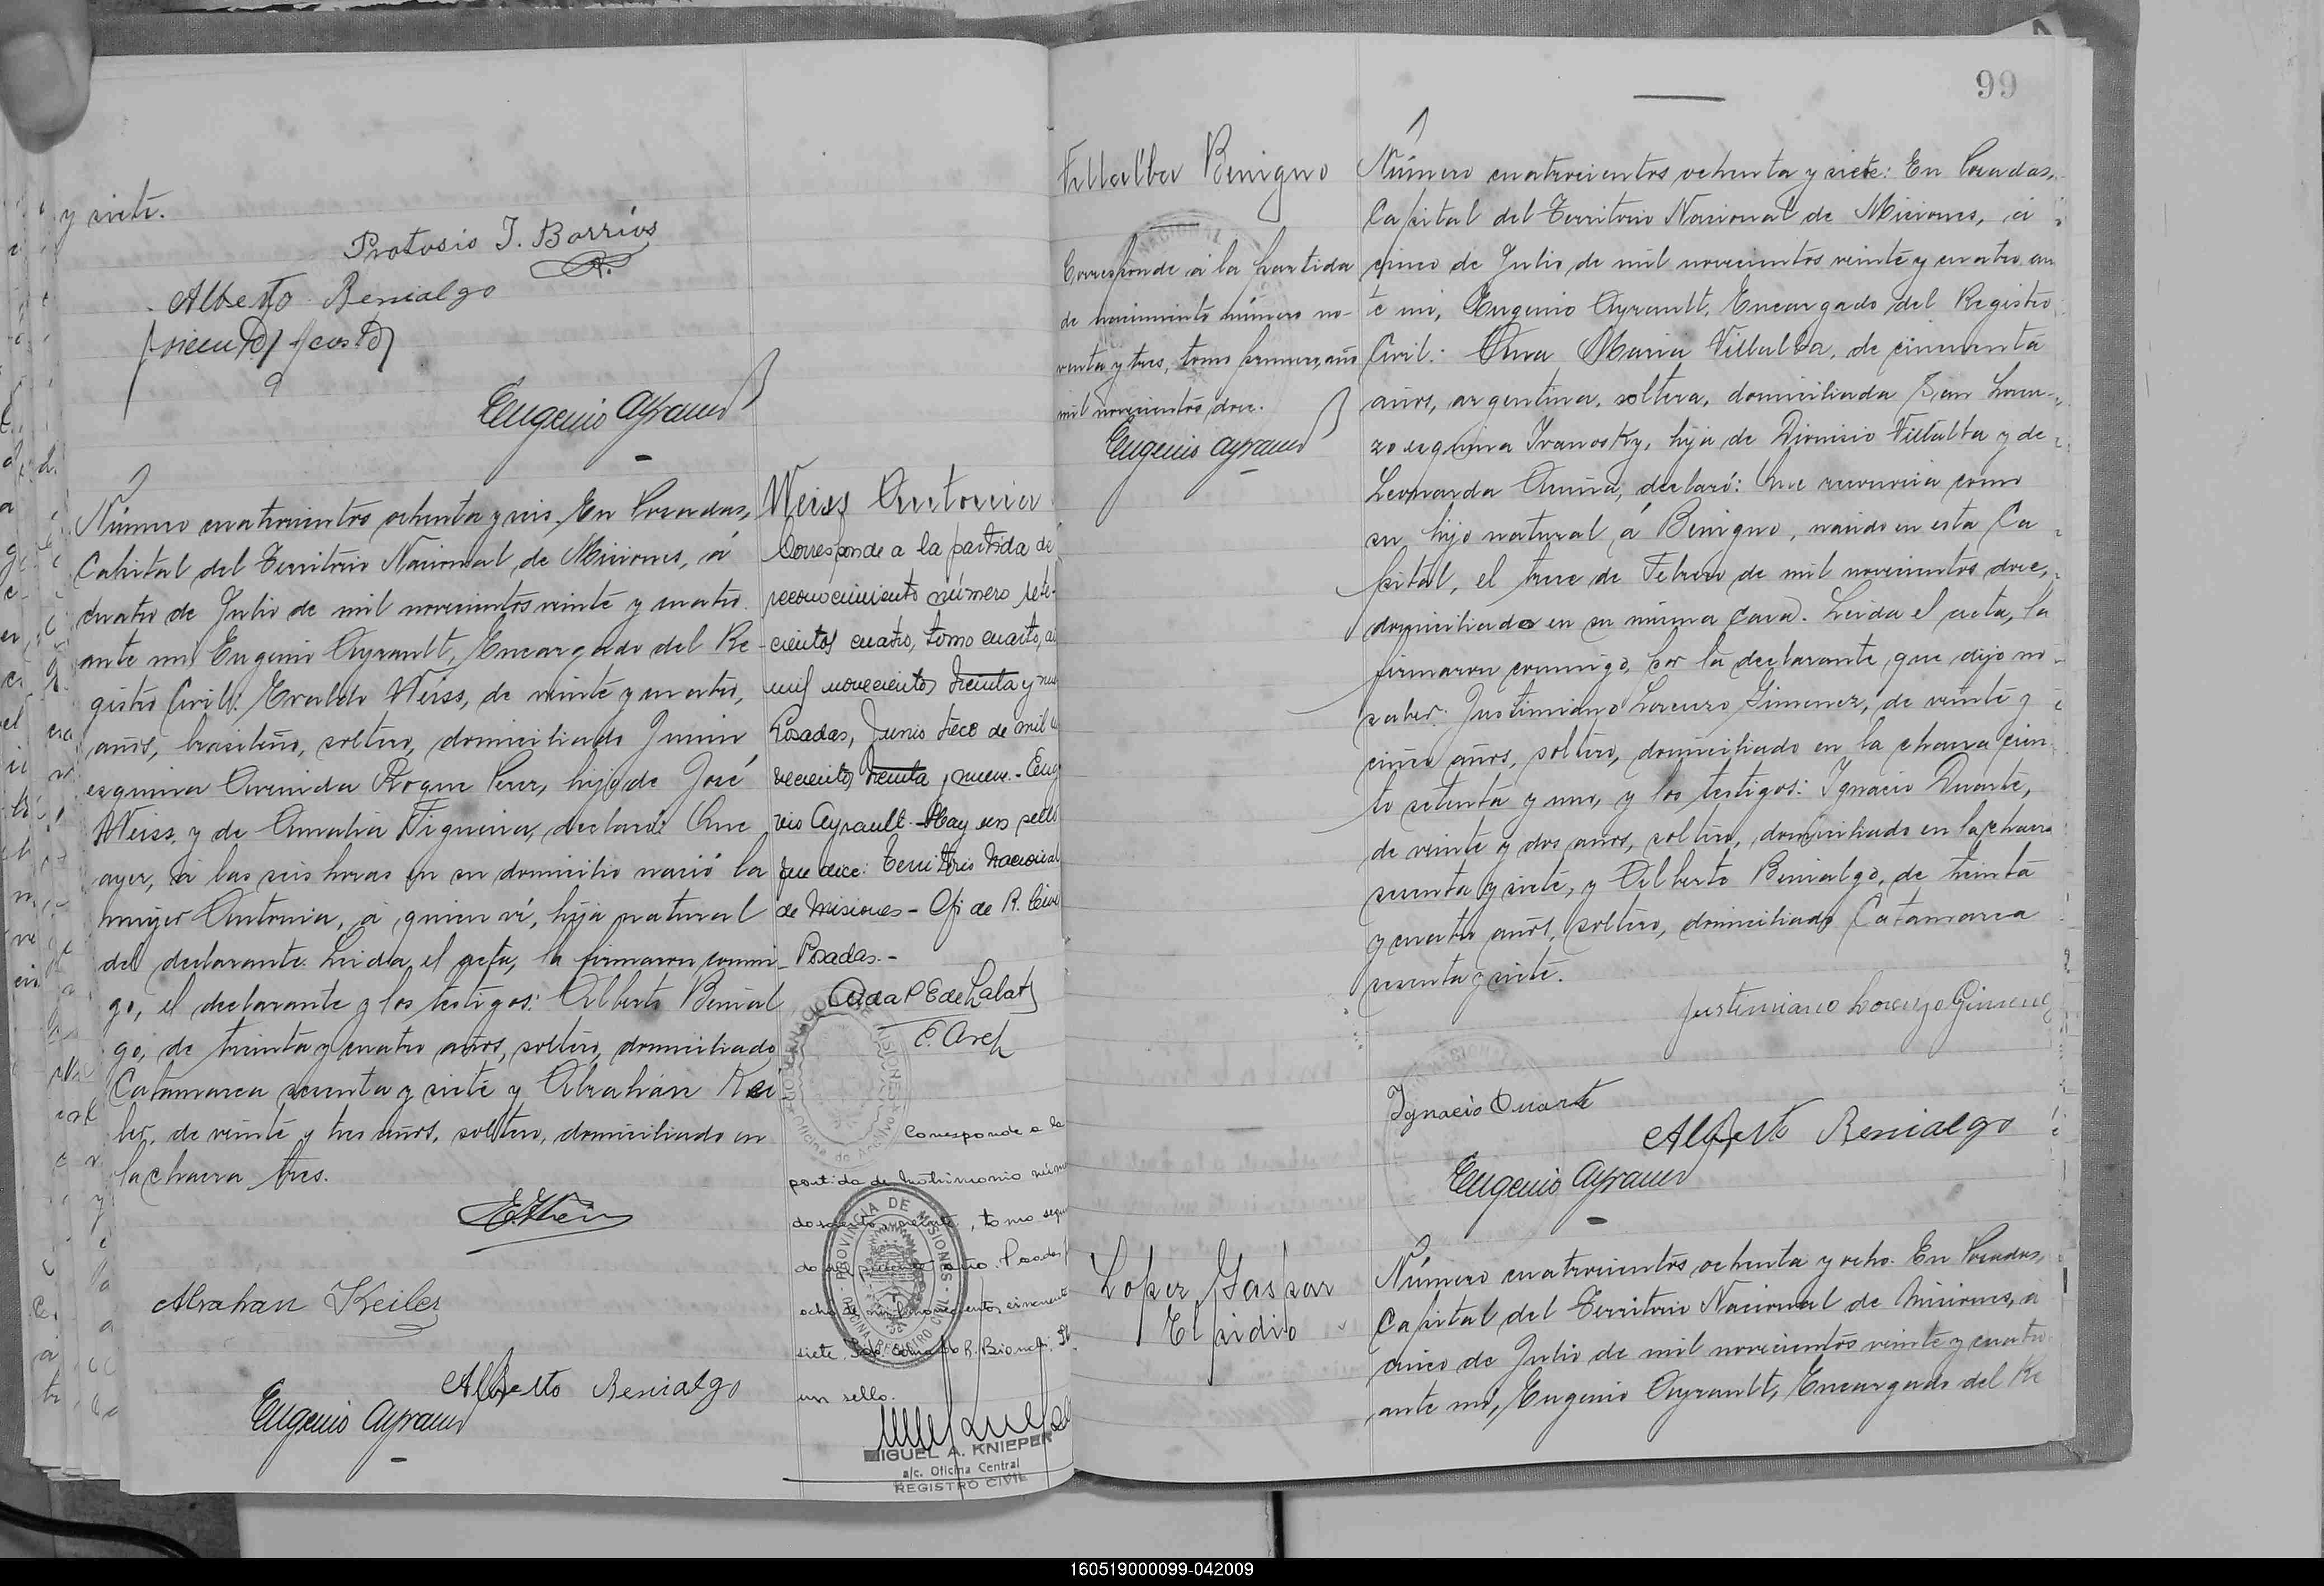 y siete.
Protasio J. Barrios
Alberto Benialgo
Eugenio Ayrault
Número cuatrocientos ochenta y seis. En Posadas,
Capital del Territorio Nacional de Misiones, á
cuatro de Julio de mil novecientos veinte y cuatro
ante mí, Eugenio Ayrault, Encargado del Re-
gistro Civil: Evaldo Weiss, de veinte y cuatro,
años, brasileño, soltero, domiciliado Junin
esquina Avenida Roque Perez, hijo de José
Weiss, y de Amalia Figueira, declaró: Que
ayer, á las seis horas en su domicilio nació la
mujer Antonia, á quien ví, hija natural
del declarante. Leida el acta, la firmaron conmi-
go, el declarante y los testigos: Alberto Benial
go, de treinta y cuatro años, soltero, domiciliado
Catamarca sesenta y siete y Abrahán Kei
ler, de veinte y tres años, soltero, domiciliado en
la chacra tres.
Abrahan Keiler
Alberto Benialgo
Eugenio Ayrault
Weiss Antonia
Corresponde a la partida de
reconocimiento número sete-
cientos cuatro, tomo cuarto, a
mil novecientos treinta y nu
Posadas, Junio trece de mil n
vecientos treinta y nueve.- Euge
nio Ayrault.- Hay un sello
que dice: Territorio Nacional
de Misiones - Ofi de R. Civil
Posadas.-
Corresponde a la
partida de Matrimonio núm
doscientos noventa, tomo segun
do del presente año. Posadas
ocho de mil novecientos cincuenta
siete.
un sello.
PROVINCIA DE MISIONES
OFICINA REGISTRO CIVIL
MIGUEL A. KNIEPER
a/c. Oficina Central
REGISTRO CIVIL
99
Villalba Benigno
Corresponde á la partida
de nacimiento número no-
venta y tres, tomo primero, año
mil novecientos doce.
Eugenio Ayrault
Número cuatrocientos ochenta y siete: En Posadas,
Capital del Territorio Nacional de Misiones, á
cinco de Julio de mil novecientos veinte y cuatro an
te mí, Eugenio Ayrault, Encargado del Registro
Civil: Ana Maria Villalba, de cincuenta
años, argentina, soltera, domiciliada San Loren-
zo esquina Ivanosky, hija de Dionisio Villalba y de
Leonarda Acuña, declaró: Que reconocia como
su hijo natural á Benigno, nacido en esta Ca
pital, el trece de Febrero de mil novecientos doce,
domiciliado en su misma casa. Leida el acta, la
firmaron conmigo, por la declarante, que dijo no
saber: Justiniano Lorenzo Gimenez, de veinte y
cinco años, soltero, domiciliado en la chacra cien
to setenta y uno, y los testigos: Ignacio Duarte,
de veinte y dos años, soltero, domiciliado en la chacra
sesenta y siete, y Alberto Benialgo, de treinta
y cuatro años, soltero, domiciliado Catamarca
sesenta y siete.
Justiniano Lorenzo Gimenez
Ignacio Duarte
Alberto Benialgo
Eugenio Ayrault
Lopez Gaspar
Elpidio
Número cuatrocientos ochenta y ocho. En Posadas,
Capital del Territorio Nacional de Misiones, á
cinco de Julio de mil novecientos veinte y cuatro
ante mí, Eugenio Ayrault, Encargado del Re
160519000099-042009